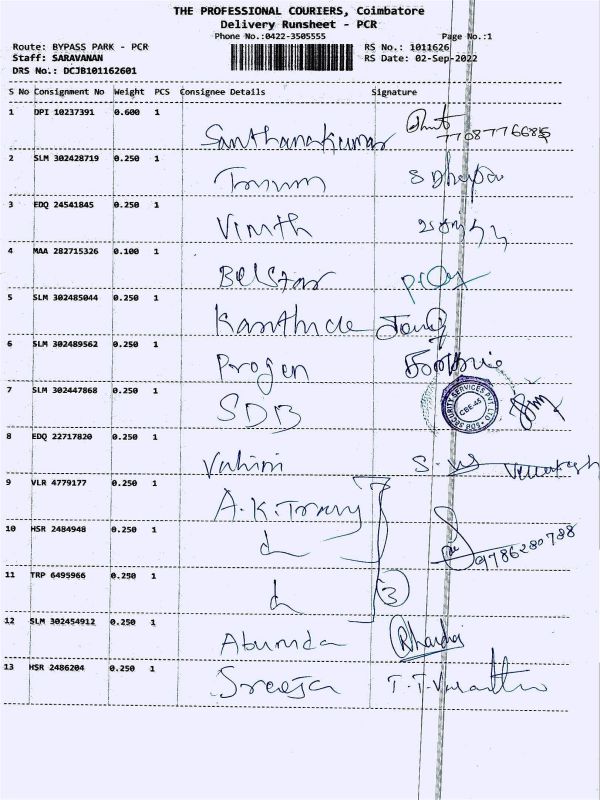 THE PROFESSIONAL COURIERS, Coimbatore
Delivery Runsheet - PCR
Phone No.:0422-3505555 Page No.:1
Route: BYPASS PARK - PCR RS No.: 1011626
Staff: SARAVANAN RS Date: 02-Sep-2022
DRS No.: DCJB101162601
S No Consignment No Weight PCS Consignee Details Signature
1 DPI 10237391 0.600 1
Santhanakumar
2 SLM 302428719 0.250 1
3 EDQ 24541845 0.250 1
Vinoth
4 MAA 282715326 0.100 1
Belstar
5 SLM 302485044 0.250 1
6 SLM 302489562 0.250 1
Progen
7 SLM 302447868 0.250 1
SDB
SDB SECURITY SERVICES PVT LTD
CBE-45
8 EDQ 22717820 0.250 1
Vahini S.
9 VLR 4779177 0.250 1
A.K.
10 HSR 2484948 0.250 1
9786280788
11 TRP 6495966 0.250 1
3
12 SLM 302454912 0.250 1
13 HSR 2486204 0.250 1
Sreeja T.T.